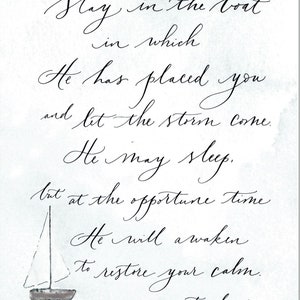 Stay in the boat
in which
He has placed you
and let the storm come.
He may sleep,
but at the opportune time
He will awaken
to restore your calm.